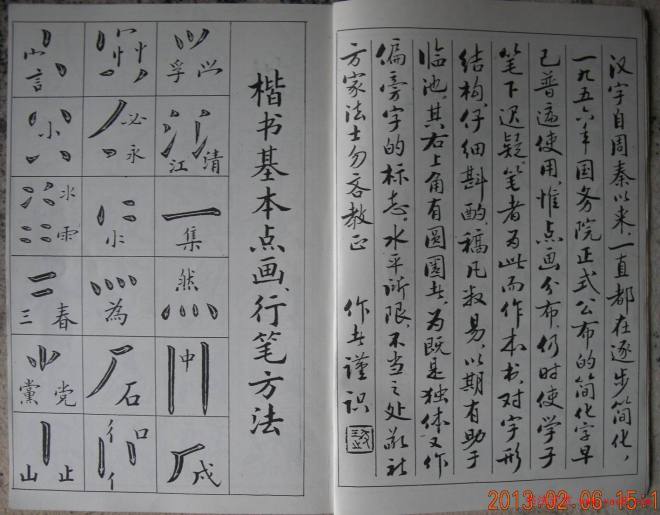 汉字自周秦以来,一直都在逐步简化,
一九五六年国务院正式公布的简化字早
已普遍使用,惟点画分布,仍时使学子
笔下迟疑,笔者为此而作本书,对字形
结构,仔细斟酌,稿凡数易,以期有助于
临池,其右上角有圆圈者,为既是独体又作
偏旁字的标志,水平所限,不当之处敬祈
方家法士勿吝教正 作者谨识
楷书基本点画、行笔方法
孚
清 江
集
然
中
成
必 永
为
石
口 彳 亻
言
小
水 雨
三 春
黨 党
山 止
2013.02.06 15:1